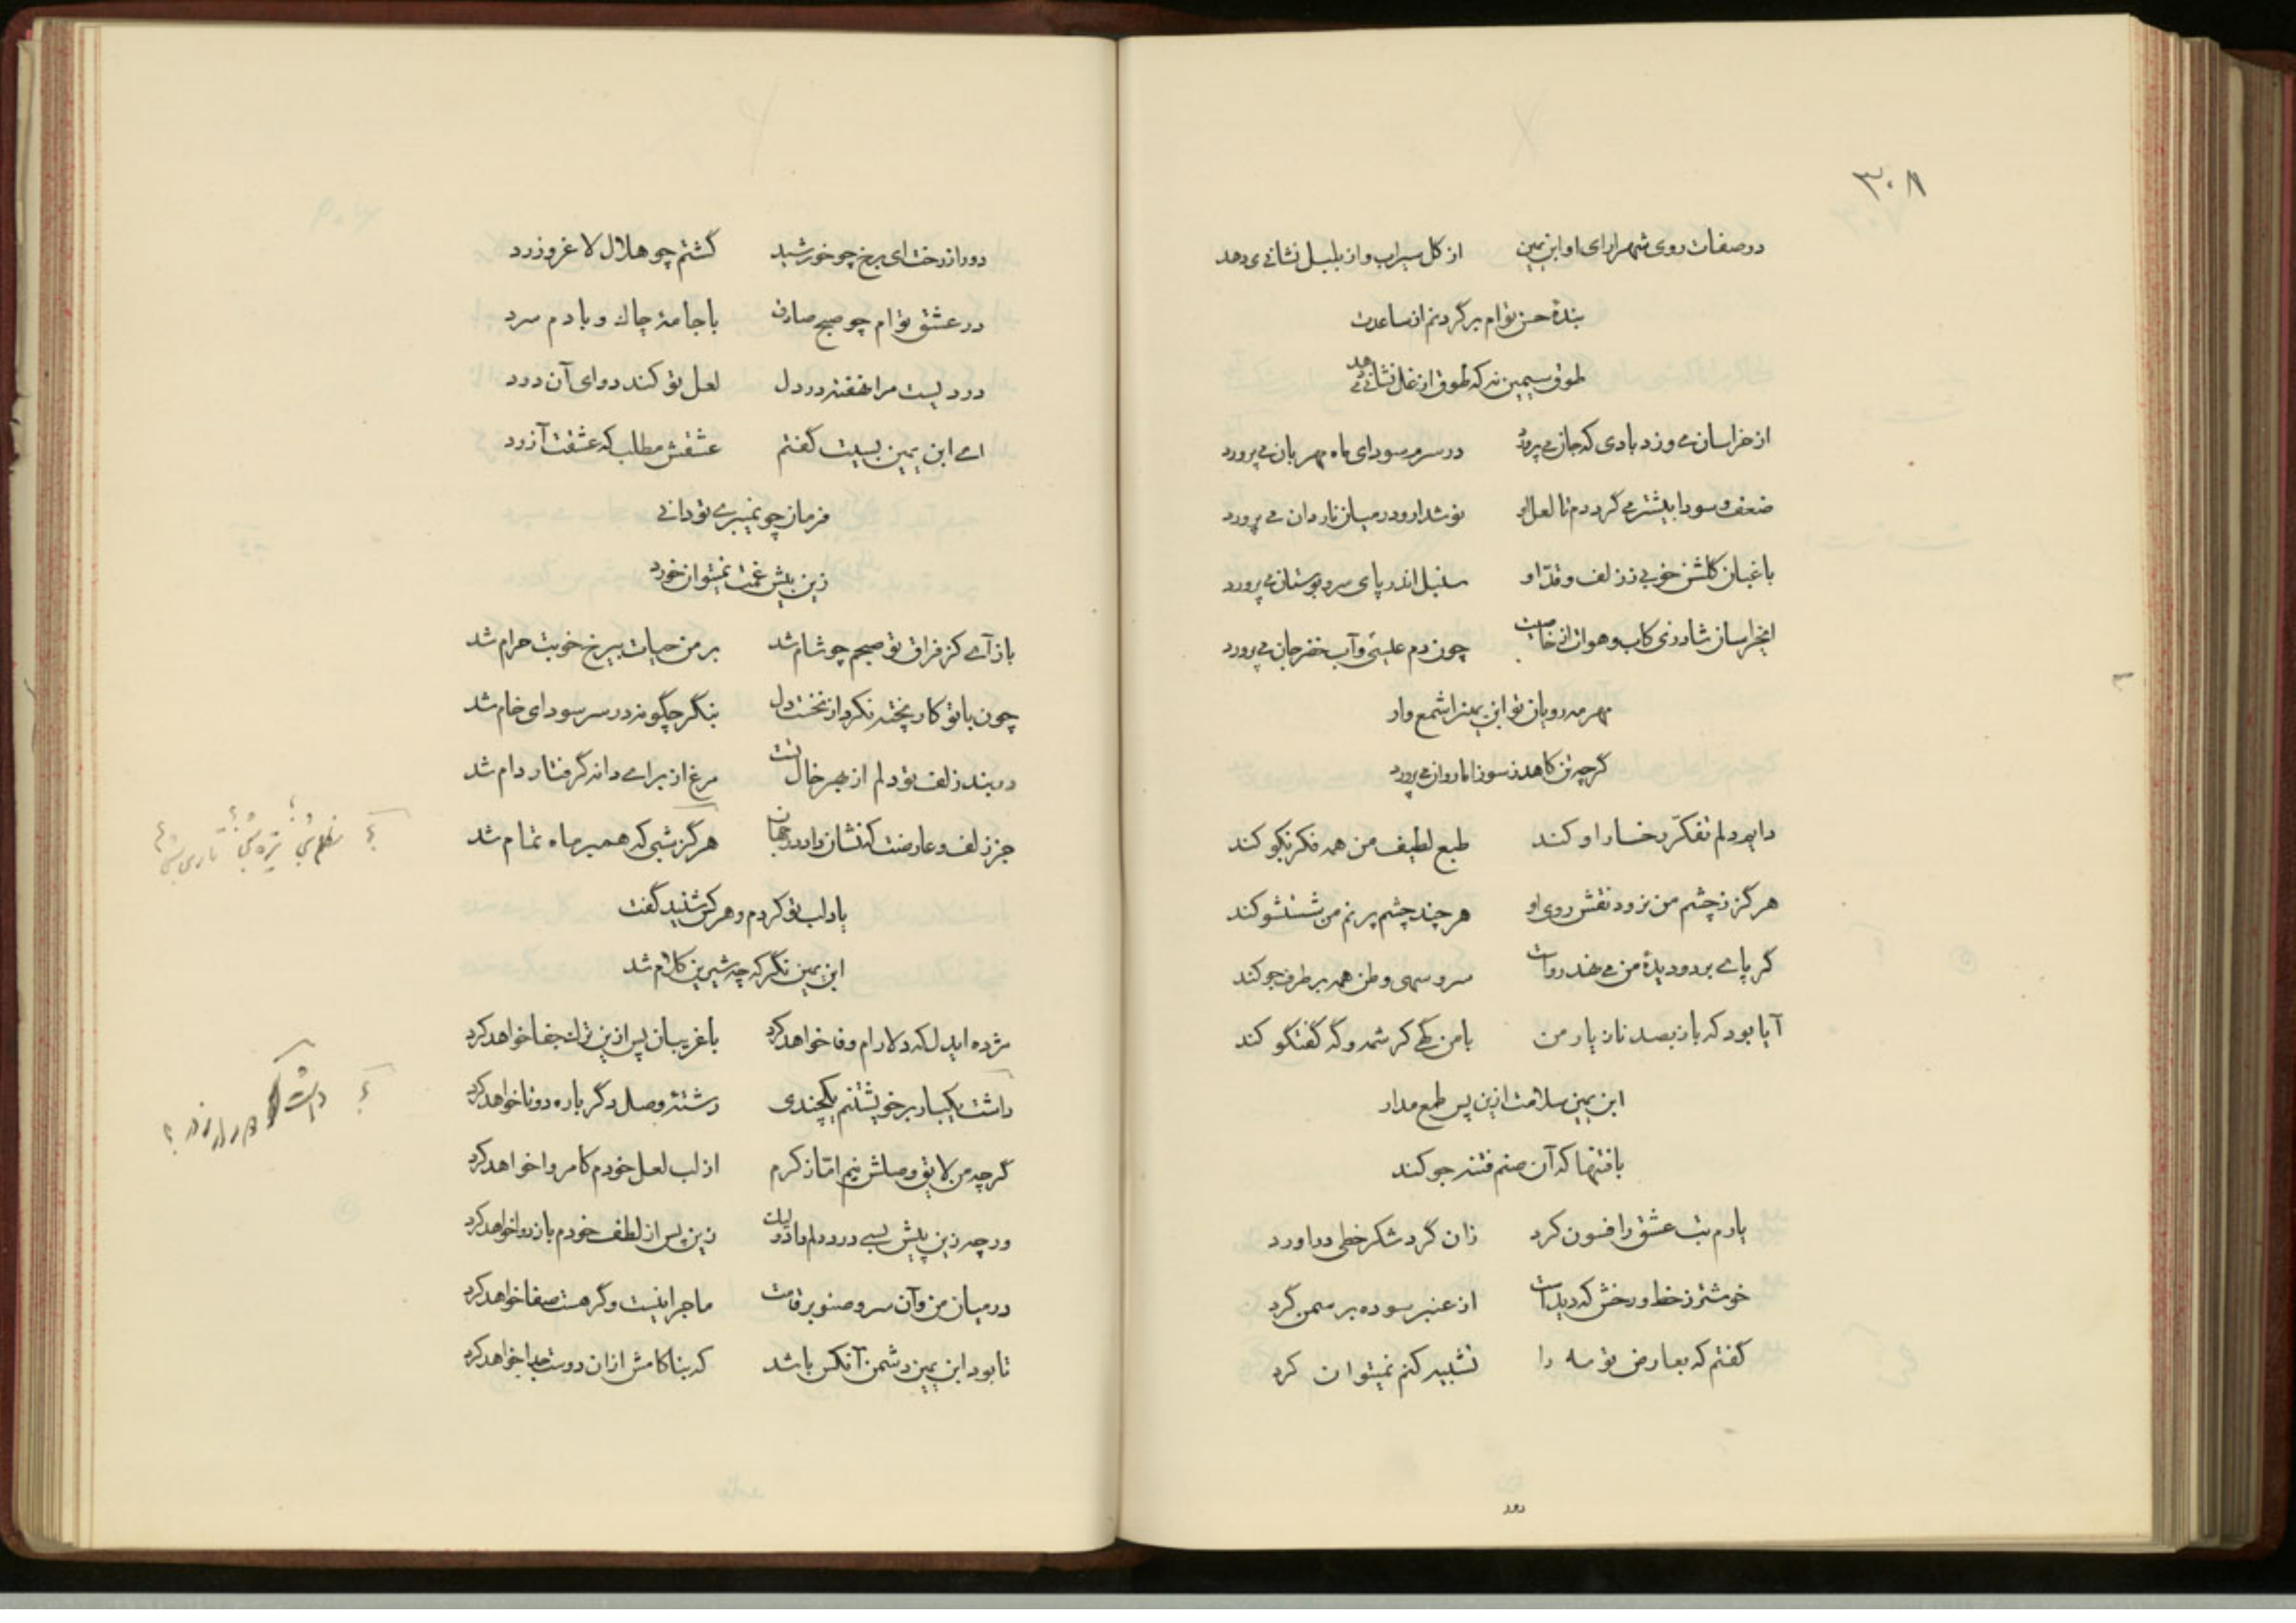 ۳۰۸
در صفات روی شهرارای او ابن یمین از گل سیراب و از بلبل نشانی دهد
بندهٔ حسن توام بر گردنم از ساعدت
طوق سیمین نه که طوق از غل نشانی دهد
از خراسان می وزد بادی که جان می پرورد در سرم سودای ماه مهربان می پرورد
ضعف و سودا بیشتر می گرددم تا لعل او نوشدارو در میان ناردان می پرورد
باغبان گلشن خوبی ز زلف و قدّ او سنبل اندر پای سرو بوستان می پرورد
ای خراسان شاد زی کاب و هوات از خاصیت چون دم عیسی و آب خضر جان می پرورد
مهر مه رویان تو ابن یمین را شمع وار
گرچه تن کاهد ز سوز اما روان می پرورد
دایم دلم تفکّر رخسار او کند طبع لطیف من همه فکر نکو کند
هرگز ز چشم من نرود نقش روی او هرچند چشم پر نم من شستشو کند
گر پای بر دو دیدهٔ من می نهد رواست سرو سهی وطن همه بر طرف جو کند
آیا بود که باز بصد ناز یار من با من گهی کرشمه و گه گفتگو کند
ابن یمین سلامت ازین پس طمع مدار
با فتنها که آن صنم فتنه جو کند
یارم بت عشق را فسون کرد زان گرد شکر خطی دراورد
خوشتر ز خط و رخش که دیدست از عنبر سوده بر سمن گرد
گفتم که بعارض تو مه را تشبیه کنم نمیتوان کرد
دور
دور از رخت ای برخ چو خورشید گشتم چو هلال لاغر و زرد
در عشق توام چو صبح صادق با جامهٔ چاك و با دم سرد
دردیست مرا نهفته در دل لعل تو کند دوای آن درد
ای ابن یمین بسیت گفتم عشقش مطلب که عشقت آزرد
فرمان چو نمیبری تو دانی
زین بیش غمت نمیتوان خورد
باز آی کز فراق تو صبحم چو شام شد بر من حیات بی رخ خوبت حرام شد
چون با تو کار پخته نکرد از نخست دل بنگر چگونه در سر سودای خام شد
در بند زلف تو دلم از بهر خال تست مرغ از برای دانه گرفتار دام شد
جز زلف و عارضت که نشان داد در جهان هرگز شبی که همبر ماه تمام شد
یاد لب تو کردم و هر کس شنید گفت
ابن یمین نگر که چه شیرین کلام شد
مژده ایدل که دلارام وفا خواهد کرد با غریبان پس ازین ترك جفا خواهد کرد
داشت یکبار بر خویشتنم یکچندی رشتهٔ وصل دگر باره دوتا خواهد کرد
گرچه من لایق وصلش نیم اما ز کرم از لب لعل خودم کامروا خواهد کرد
ورچه زین پیش بسی درد دلم داد ولیك زین پس از لطف خودم باز دوا خواهد کرد
در میان من و آن سرو صنوبر قامت ماجرا نیست وگر هست صفا خواهد کرد
تا بود ابن یمین دشمن آنکس باشد که بناکامش ازان دوست جدا خواهد کرد